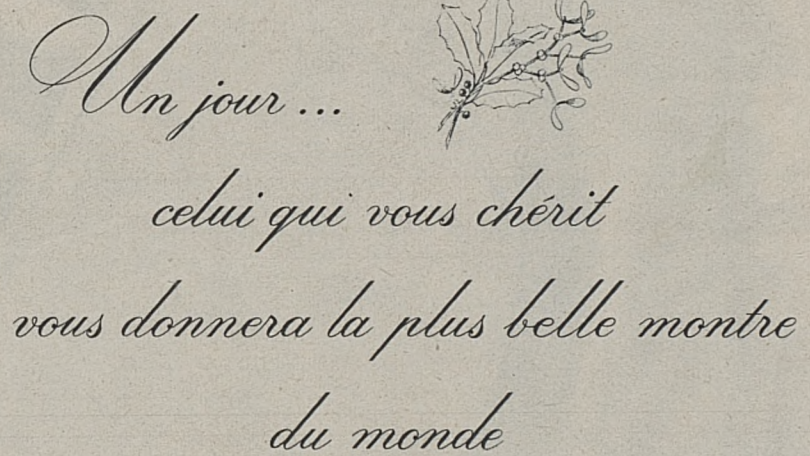 Un jour...
celui qui vous chérit
vous donnera la plus belle montre
du monde